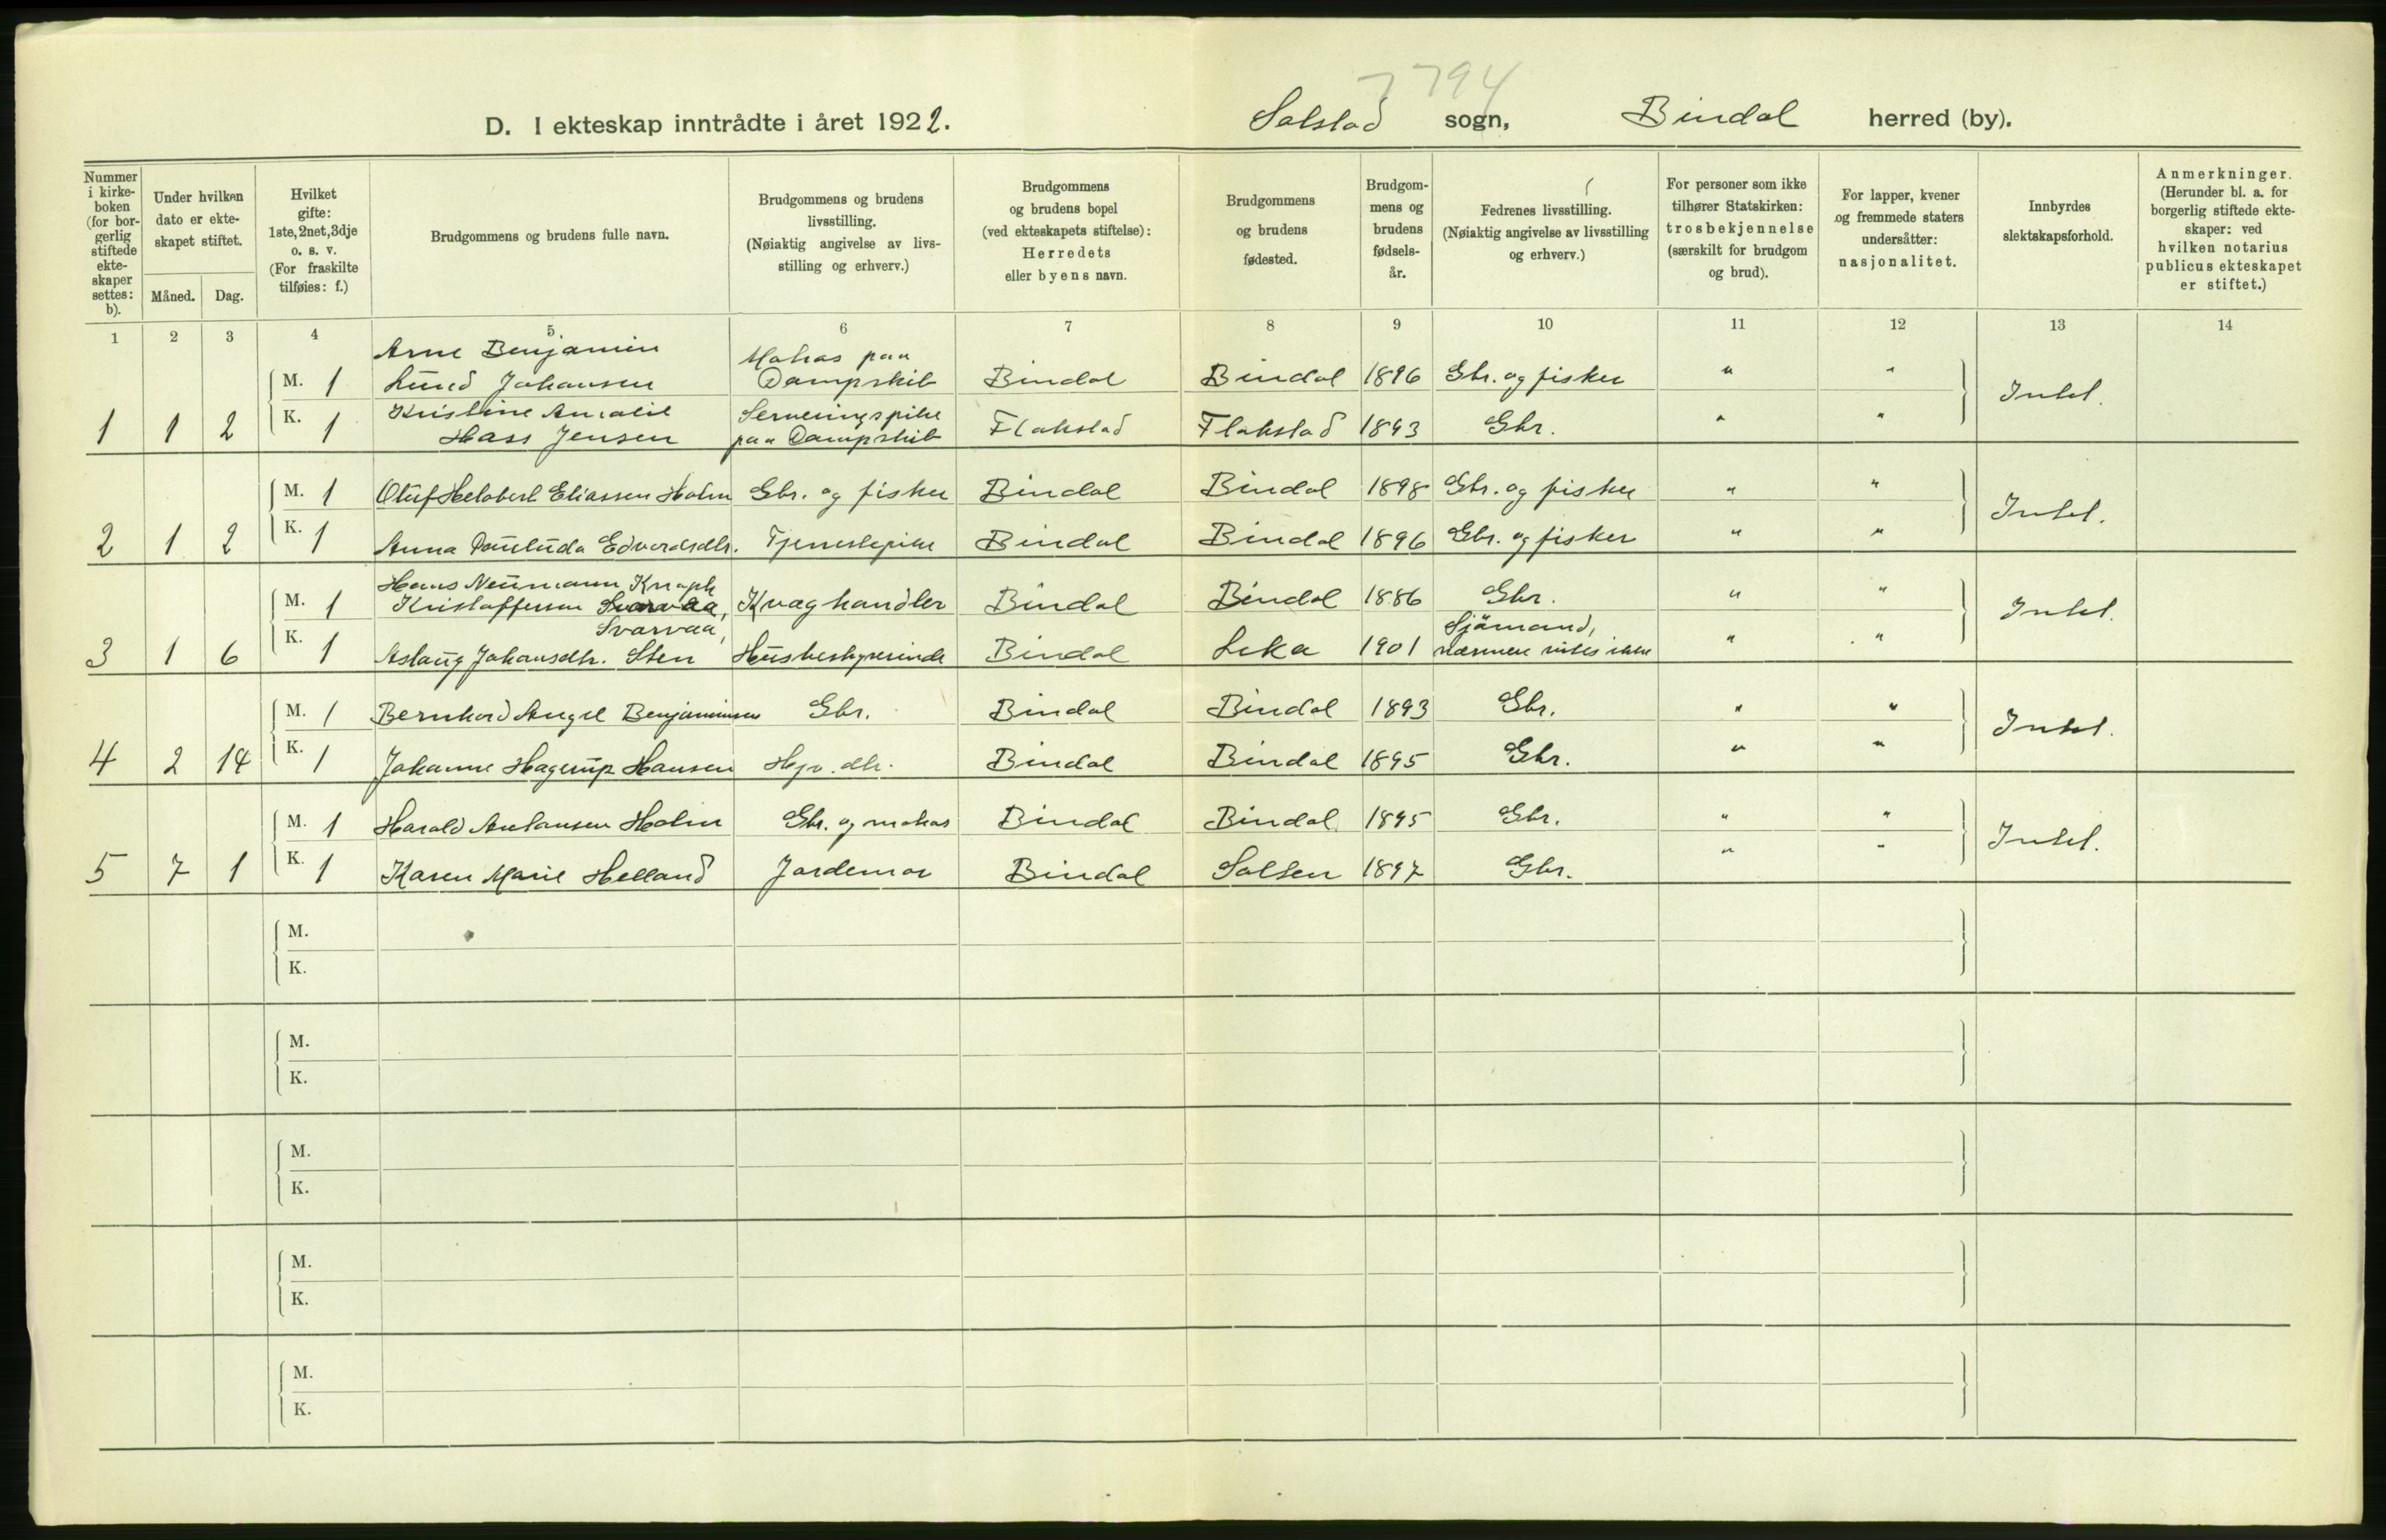 7794
D. I ekteskap inntrådte i året 1922. Solstad sogn, Bindal herred (by).
Nummer i kirkeboken (for borgerlig stiftede ekteskaper settes: b).
Under hvilken dato er ekteskapet stiftet.
Måned. Dag.
Hvilket gifte: 1ste, 2net, 3dje o. s. v. (For fraskilte tilføies: f.)
Brudgommens og brudens fulle navn.
Brudgommens og brudens livsstilling. (Nøiaktig angivelse av livsstilling og erhverv.)
Brudgommens og brudens bopel (ved ekteskapets stiftelse): Herredets eller byens navn.
Brudgommens og brudens fødested.
Brudgommens og brudens fødselsår.
Fedrenes livsstilling. (Nøiaktig angivelse av livsstilling og erhverv.)
For personer som ikke tilhører Statskirken: trosbekjennelse (særskilt for brudgom og brud).
For lapper, kvener og fremmede staters undersåtter: nasjonalitet.
Innbyrdes slektskapsforhold.
Anmerkninger. (Herunder bl. a. for borgerlig stiftede ekteskaper: ved hvilken notarius publicus ekteskapet er stiftet.)
1 2 3 4 5 6 7 8 9 10 11 12 13 14
Arne Benjamin Matros paa
M. 1 Lund Johansen Dampskib Bindal Bindal 1896 Gbr. og fisker " " Intet.
Kristine Amalie Serveringspike
1 1 2 K. 1 Hass Jensen paa Dampskib Flakstad Flakstad 1893 Gbr. " "
M. 1 Oluf Eliassen Holm Gbr. og fisker Bindal Bindal 1898 Gbr. og fisker " " Intet.
2 1 2 K. 1 Anna Edvardsdtr. Tjenestepike Bindal Bindal 1896 Gbr. og fisker " "
Hans Neumann Knaph
M. 1 Kristoffersen Svarvaa, Kvæghandler Bindal Bindal 1886 Gbr. " " Intet.
Svarvaa, Sjömand,
3 1 6 K. 1 Aslaug Johansdtr. Sten Husbestyrerinde Bindal Leka 1901 nærmere vites ikke " "
M. 1 Bernhard Angel Benjaminsen Gbr. Bindal Bindal 1893 Gbr. " " Intet.
4 2 14 K. 1 Johanne Hagerup Hansen Hjv. dtr. Bindal Bindal 1895 Gbr. " "
M. 1 Harald Antonsen Holm Gbr. og matros Bindal Bindal 1895 Gbr. " " Intet.
5 7 1 K. 1 Karen Marie Helland Jordemor Bindal Solsen 1897 Gbr. " "
M.
K.
M.
K.
M.
K.
M.
K.
M.
K.